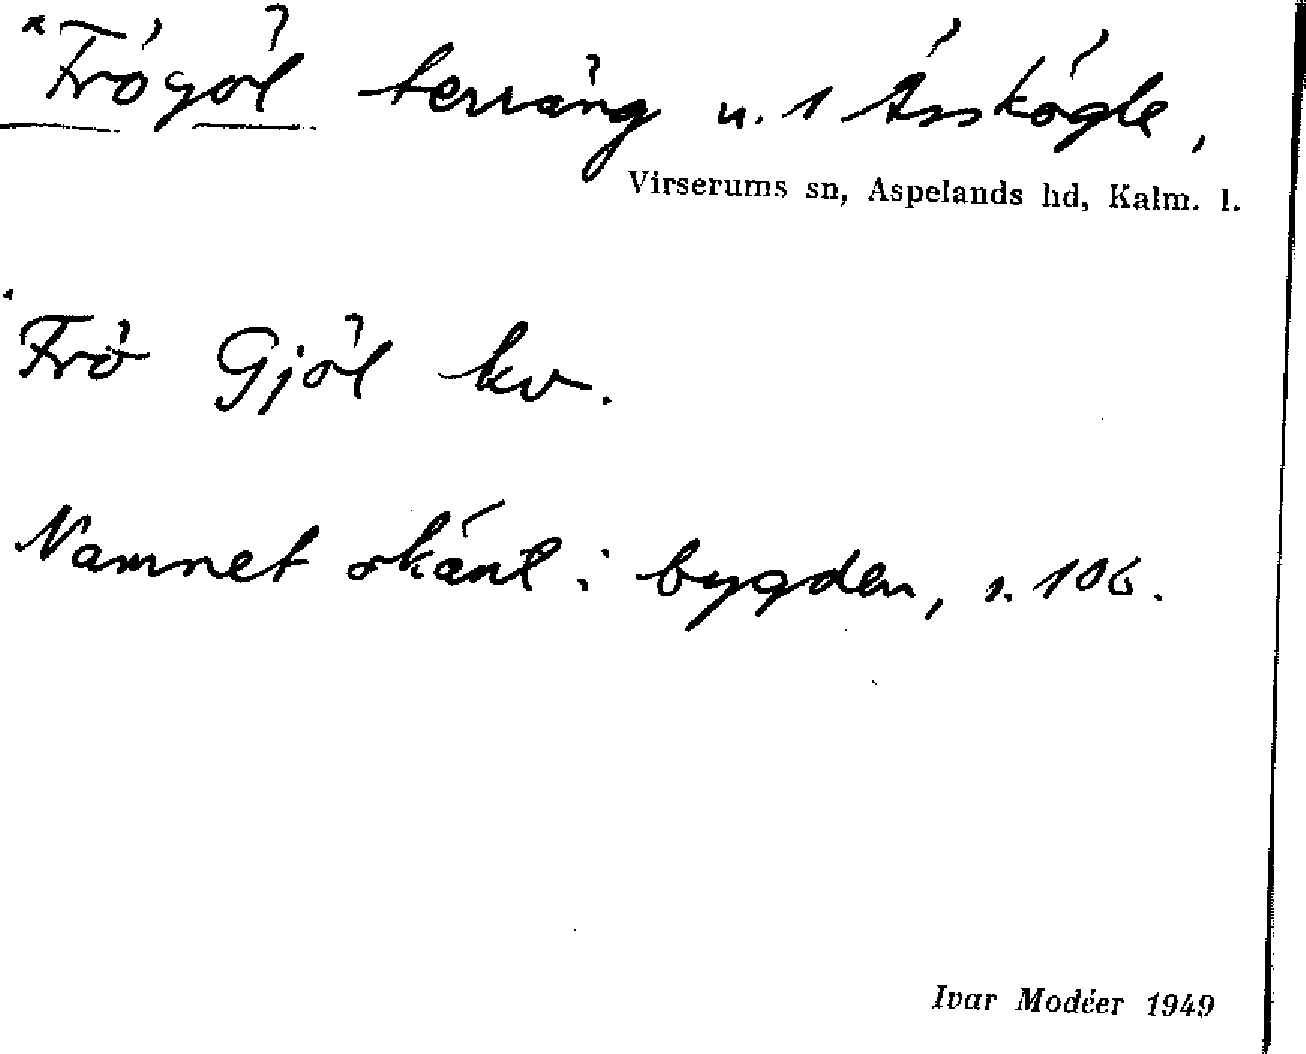 *Frögöl terräng u. 1
Virserums sn, Aspelands hd, Kalm. l.
*Frö Gjöl kv.
Namnet okänt i bygden, s. 106.
Ivar Modéer 1949